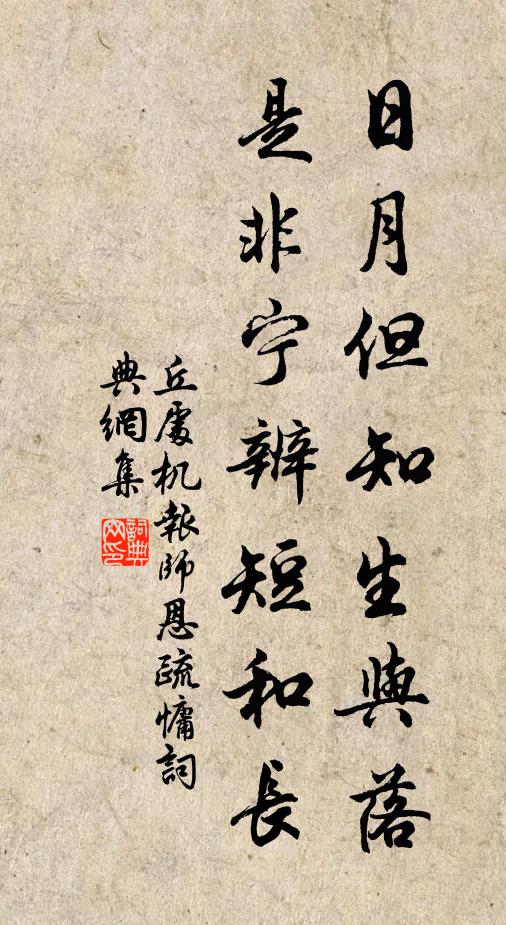 日月但知生與落
是非宁辨短和長
丘處机報師恩疏慵詞
典網集
詞典
网印